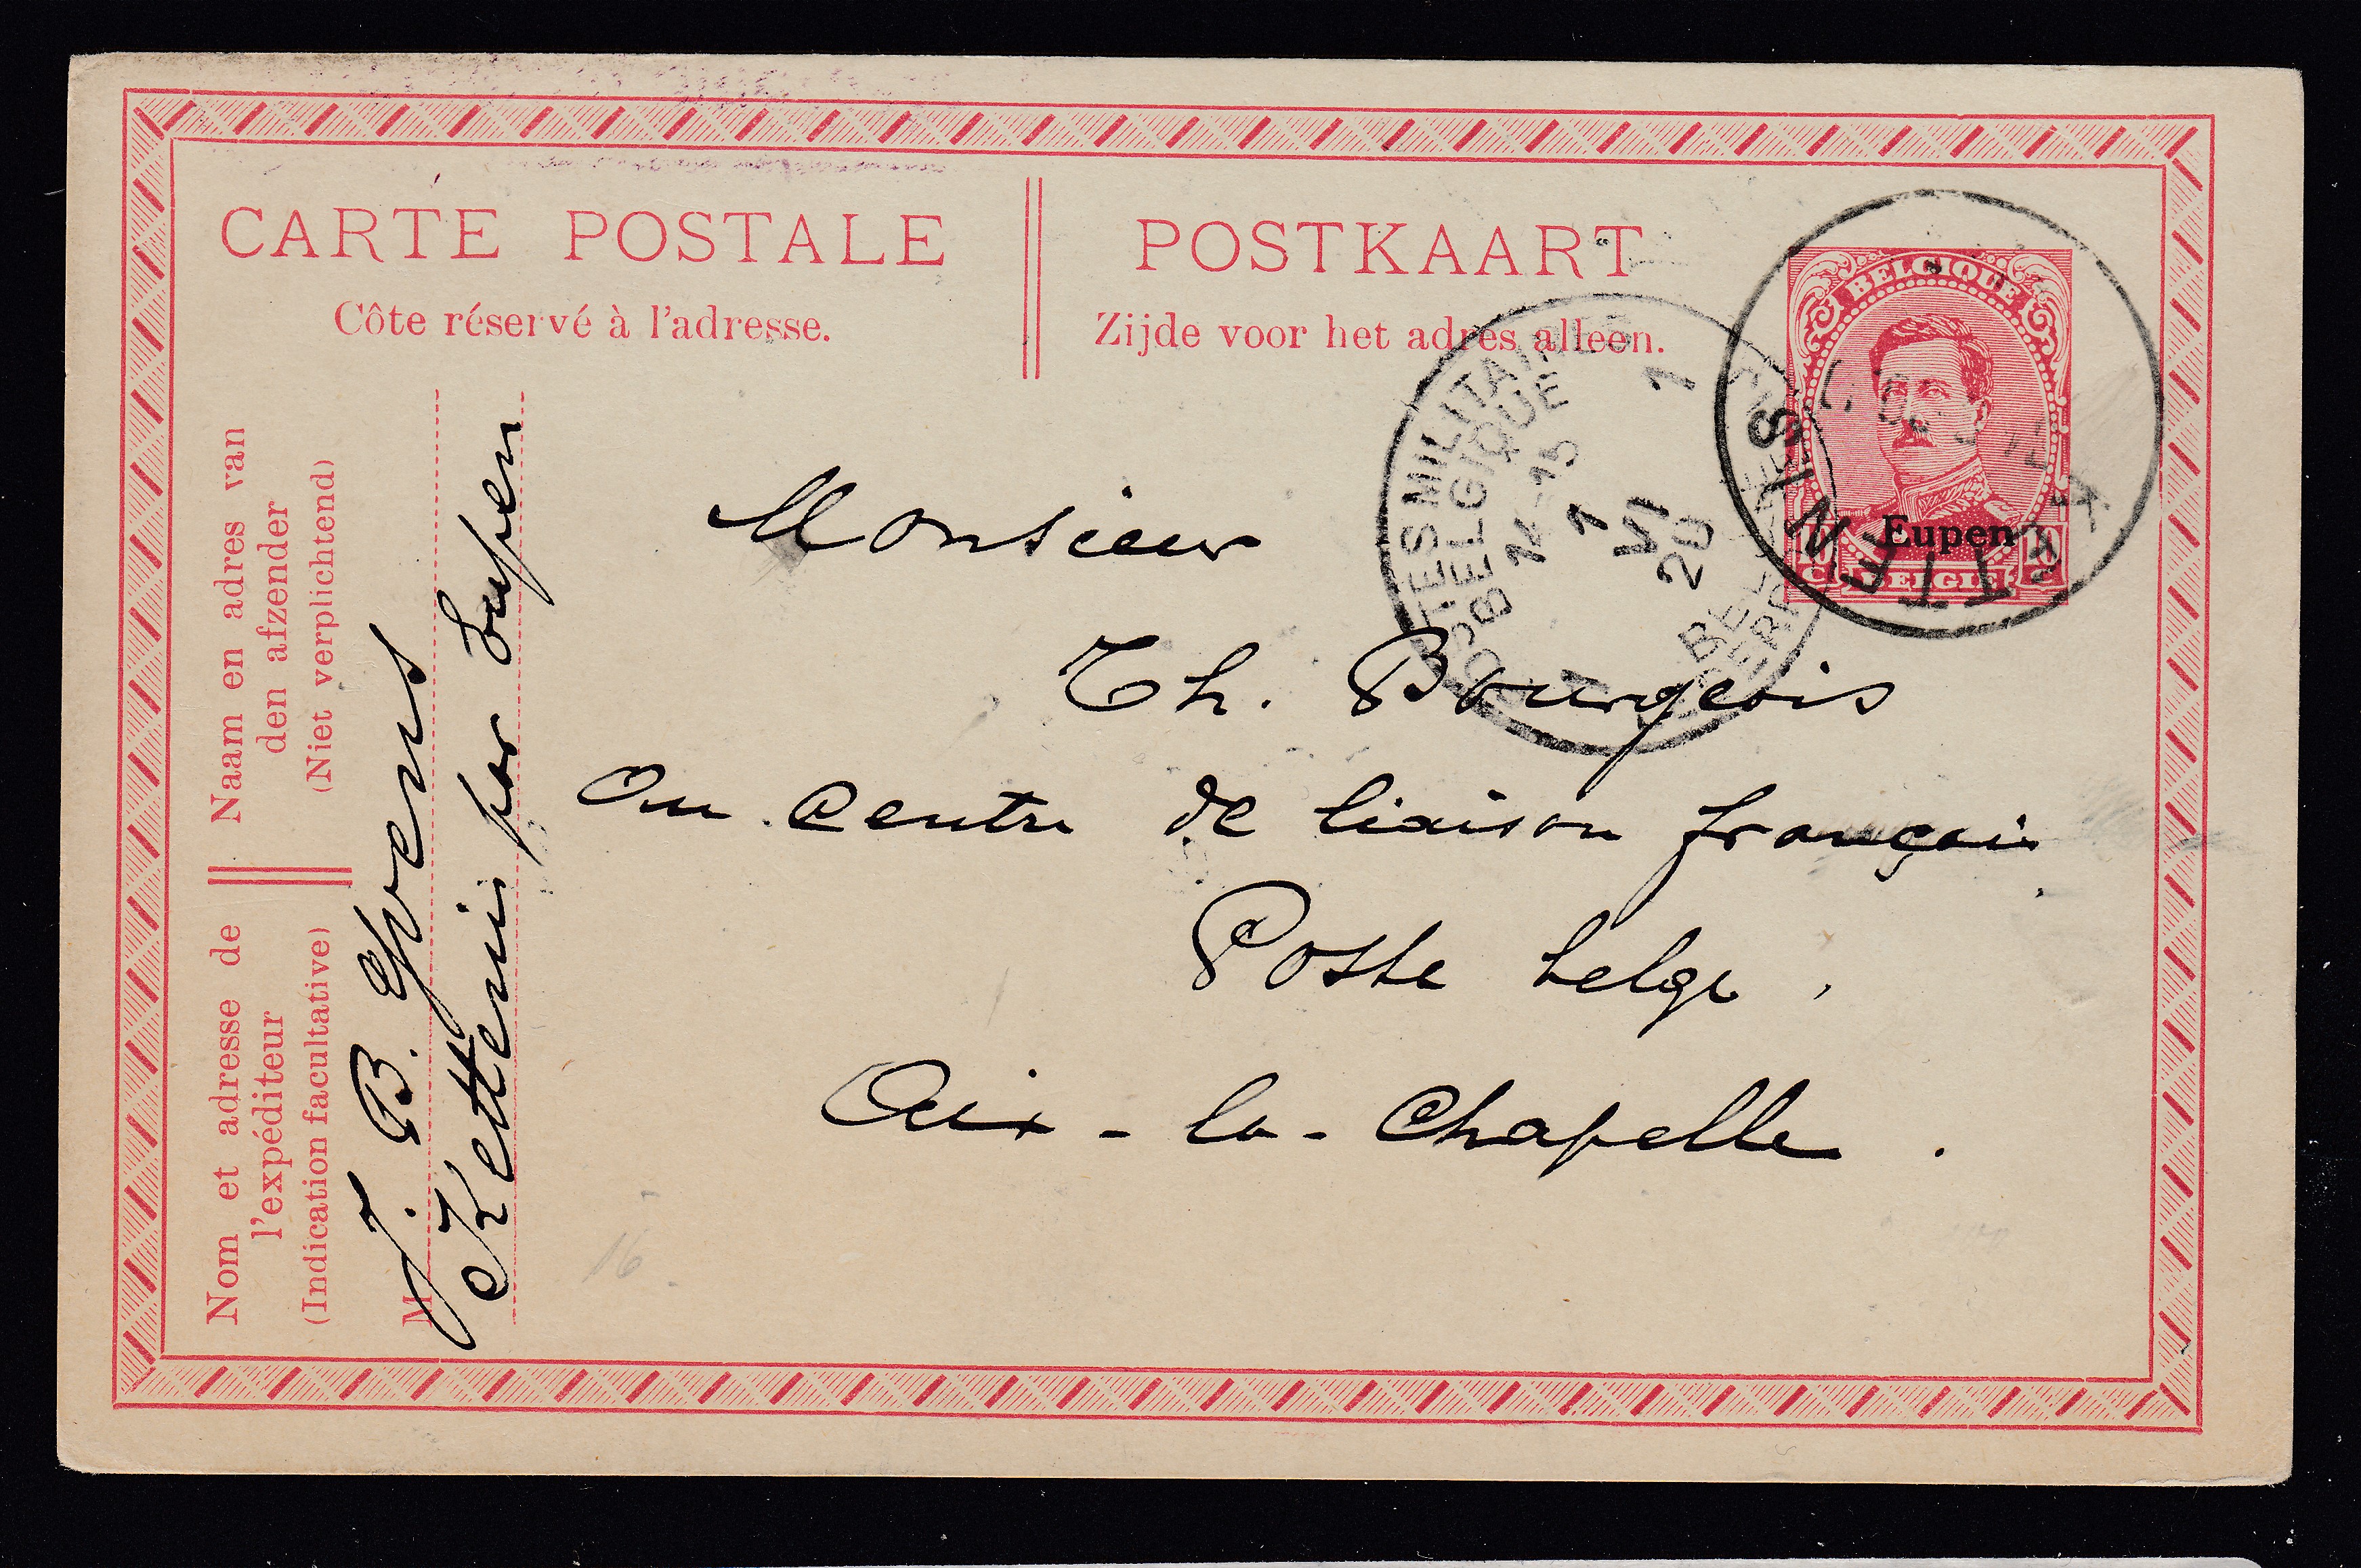 CARTE POSTALE
Côte réservé à l'adresse.
POSTKAART
Zijde voor het adres alleen.
BELGIQUE
Eupen
10 C
BELGIË
10 C
KETTENIS
POSTES MILITAIRES
BELGIQUE
1
14-15
1
VI
20
Naam en adres van
den afzender
(Niet verplichtend)
Nom et adresse de
l'expéditeur
(Indication facultative)
M
J. B.
Kettenis par Eupen
Monsieur
Th. Bourgeois
au centre de liaison français
Poste belge,
Aix-la-Chapelle.
16